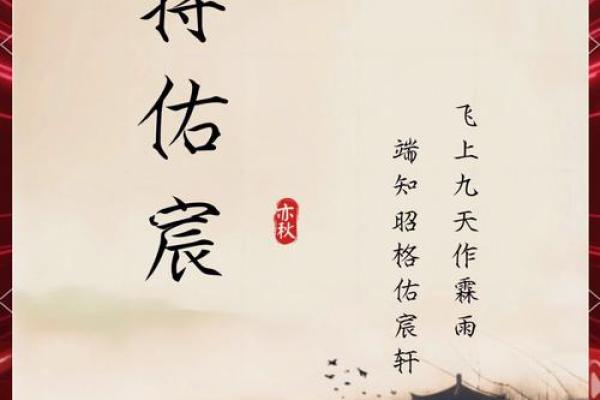 佑宸
亦秋
飞上九天作霖雨
端知昭格佑宸轩